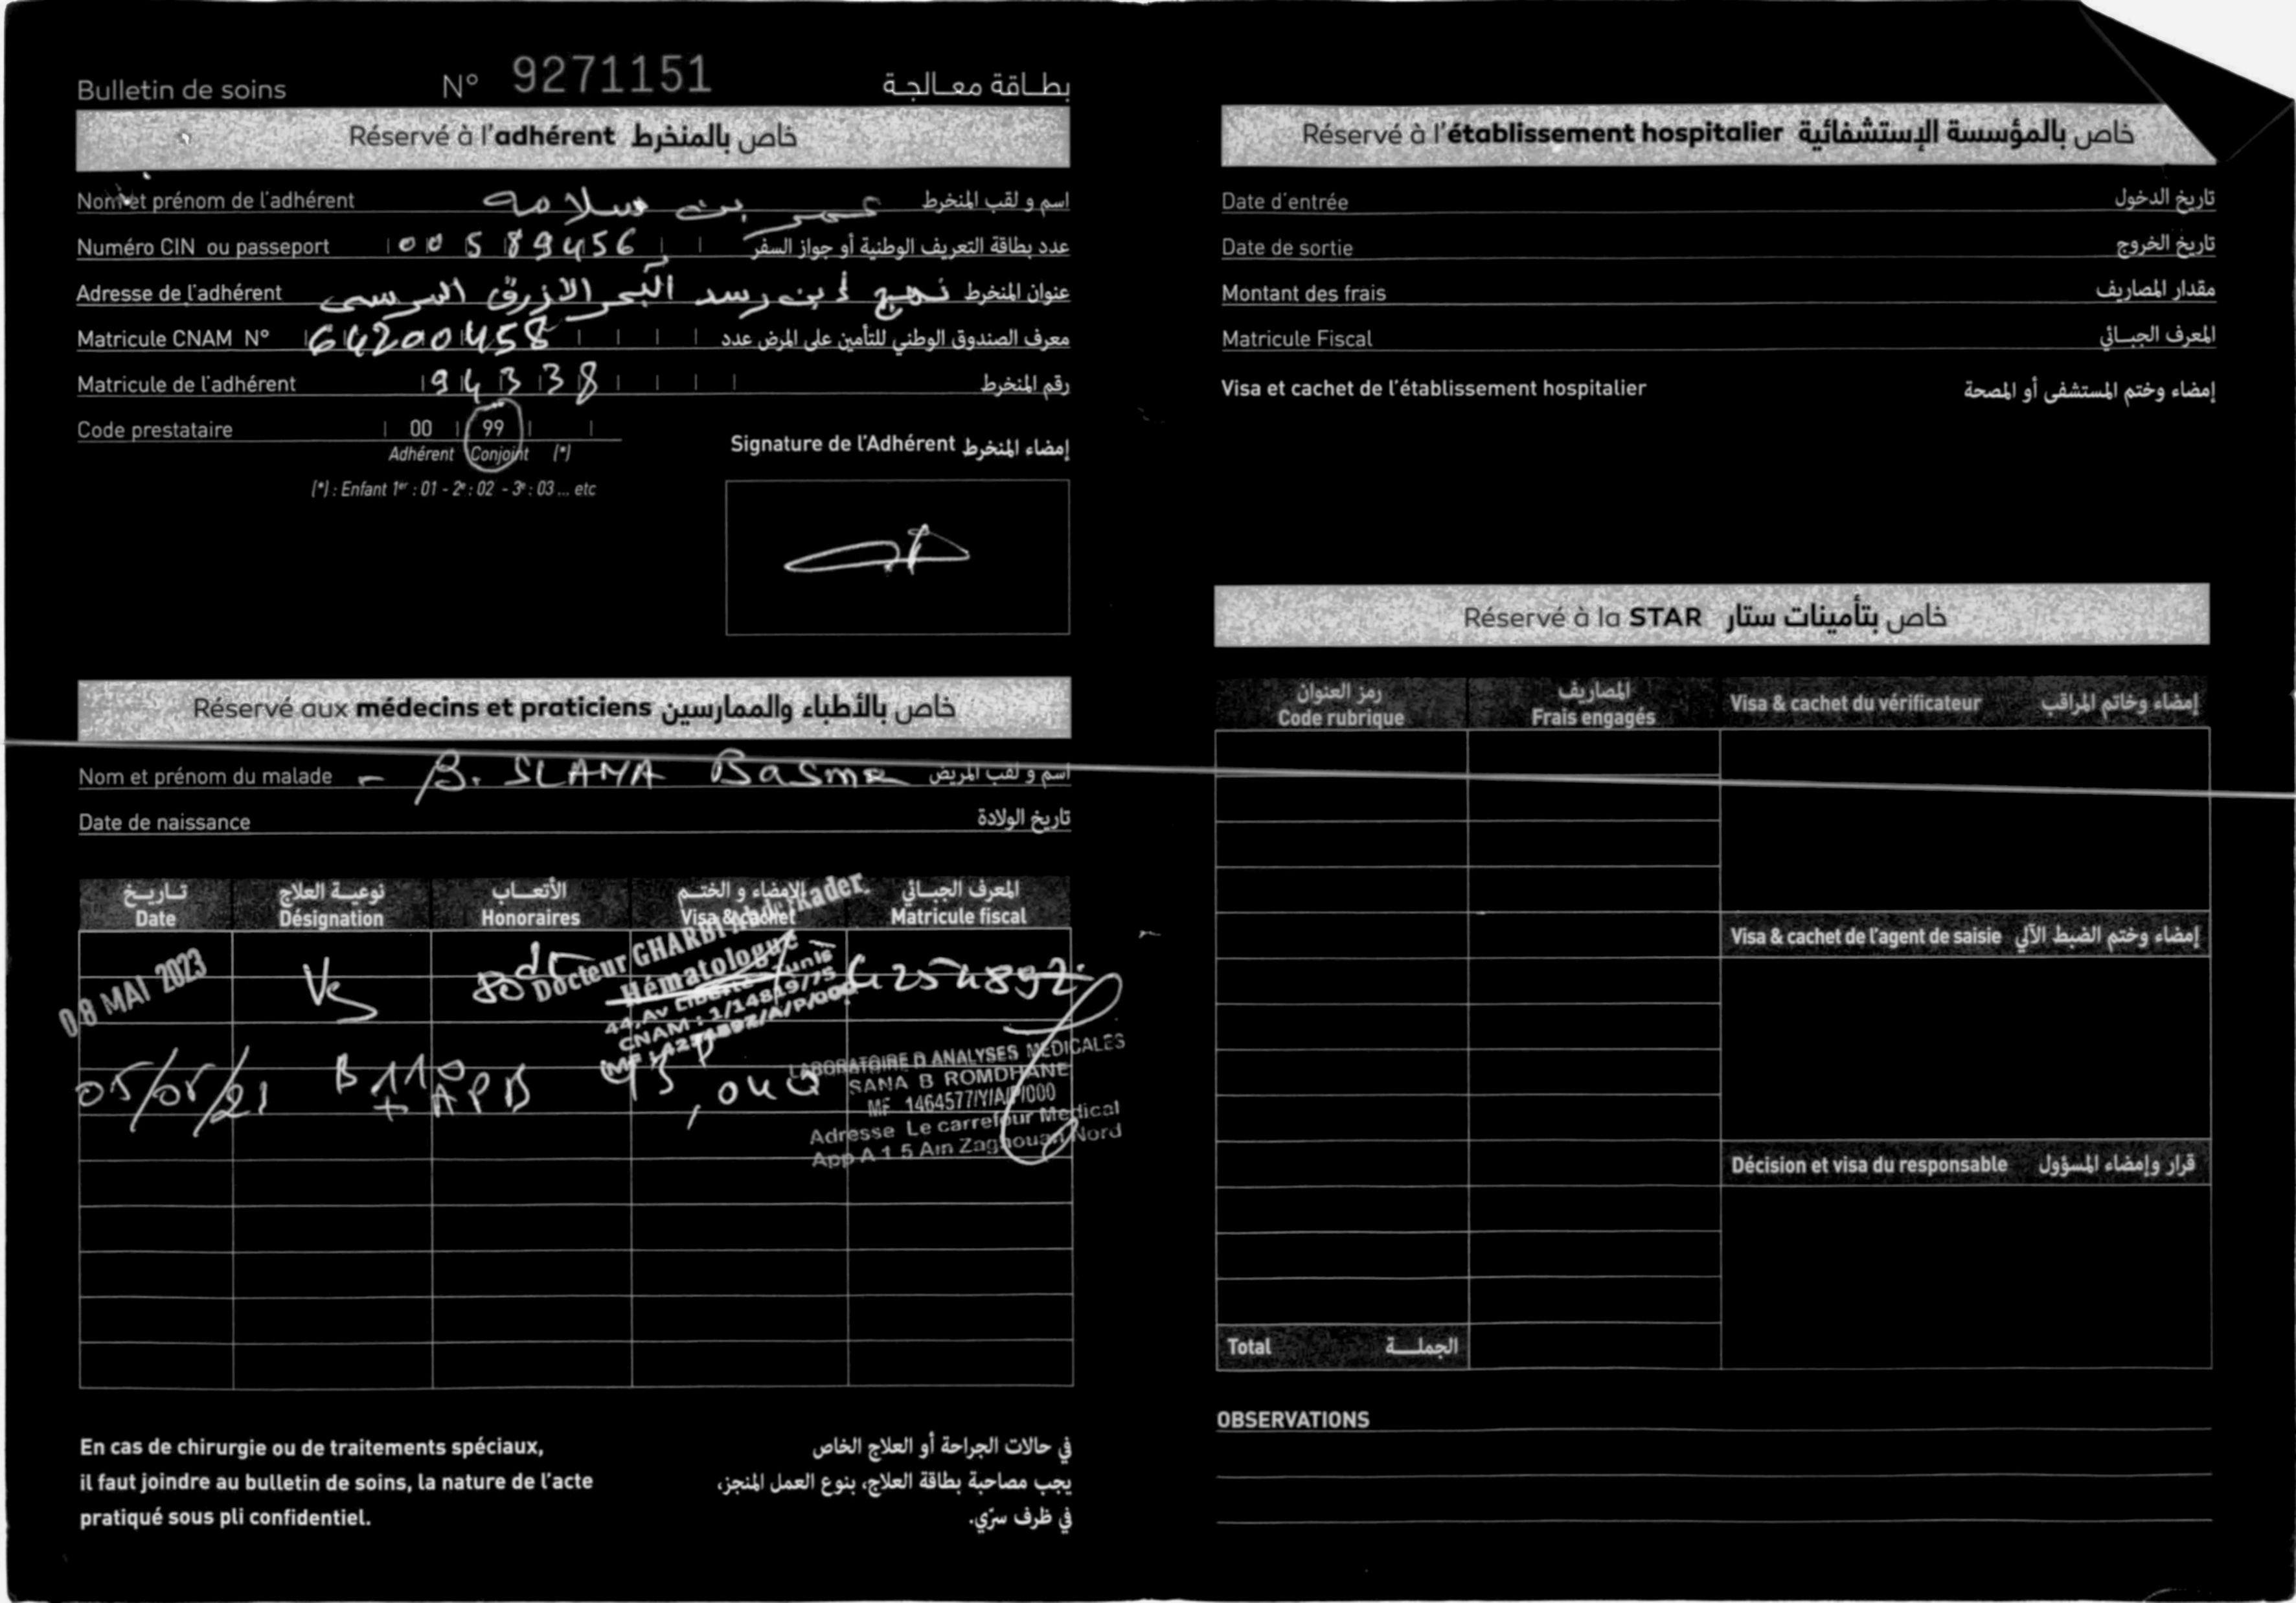 Bulletin de soins N° 9271151 بطاقة معالجة
Réservé à l'adhérent خاص بالمنخرط
Nom et prénom de l'adhérent بن سلامه اسم و لقب المنخرط
Numéro CIN ou passeport 00589456 عدد بطاقة التعريف الوطنية أو جواز السفر
Adresse de l'adhérent نهج الازرق عنوان المنخرط
Matricule CNAM N° 64200458 معرف الصندوق الوطني للتأمين على المرض عدد
Matricule de l'adhérent 94338 رقم المنخرط
Code prestataire 00 99
Adhérent Conjoint (*)
(*) : Enfant 1er : 01 - 2e : 02 - 3e : 03 ... etc
Signature de l'Adhérent إمضاء المنخرط
Réservé aux médecins et praticiens خاص بالأطباء والممارسين
Nom et prénom du malade - B. SLAMA Basma اسم و لقب المريض
Date de naissance تاريخ الولادة
تاريخ نوعية العلاج الأتعاب الإمضاء و الختم المعرف الجبائي
Date Désignation Honoraires Visa & cachet Matricule fiscal
08 MAI 2023 Vs 80dt
Docteur GHARBI Abdelkader
Hématologue
44, Av Liberté Tunis
CNAM : 1/14819/75
05/05/21 B110 + APB 43,040
LABORATOIRE D ANALYSES MEDICALES
SANA B ROMDHANE
MF 1464577/Y/A/P/000
Adresse Le carrefour Medical
App A 1 5 Ain Zaghouan Nord
En cas de chirurgie ou de traitements spéciaux,
il faut joindre au bulletin de soins, la nature de l'acte
pratiqué sous pli confidentiel.
في حالات الجراحة أو العلاج الخاص
يجب مصاحبة بطاقة العلاج، بنوع العمل المنجز،
في ظرف سرّي.
Réservé à l'établissement hospitalier خاص بالمؤسسة الإستشفائية
Date d'entrée تاريخ الدخول
Date de sortie تاريخ الخروج
Montant des frais مقدار المصاريف
Matricule Fiscal المعرف الجبائي
Visa et cachet de l'établissement hospitalier إمضاء وختم المستشفى أو المصحة
Réservé à la STAR خاص بتأمينات ستار
رمز العنوان المصاريف
Code rubrique Frais engagés Visa & cachet du vérificateur إمضاء وخاتم المراقب
Visa & cachet de l'agent de saisie إمضاء وختم الضبط الآلي
Décision et visa du responsable قرار وإمضاء المسؤول
Total الجملة
OBSERVATIONS